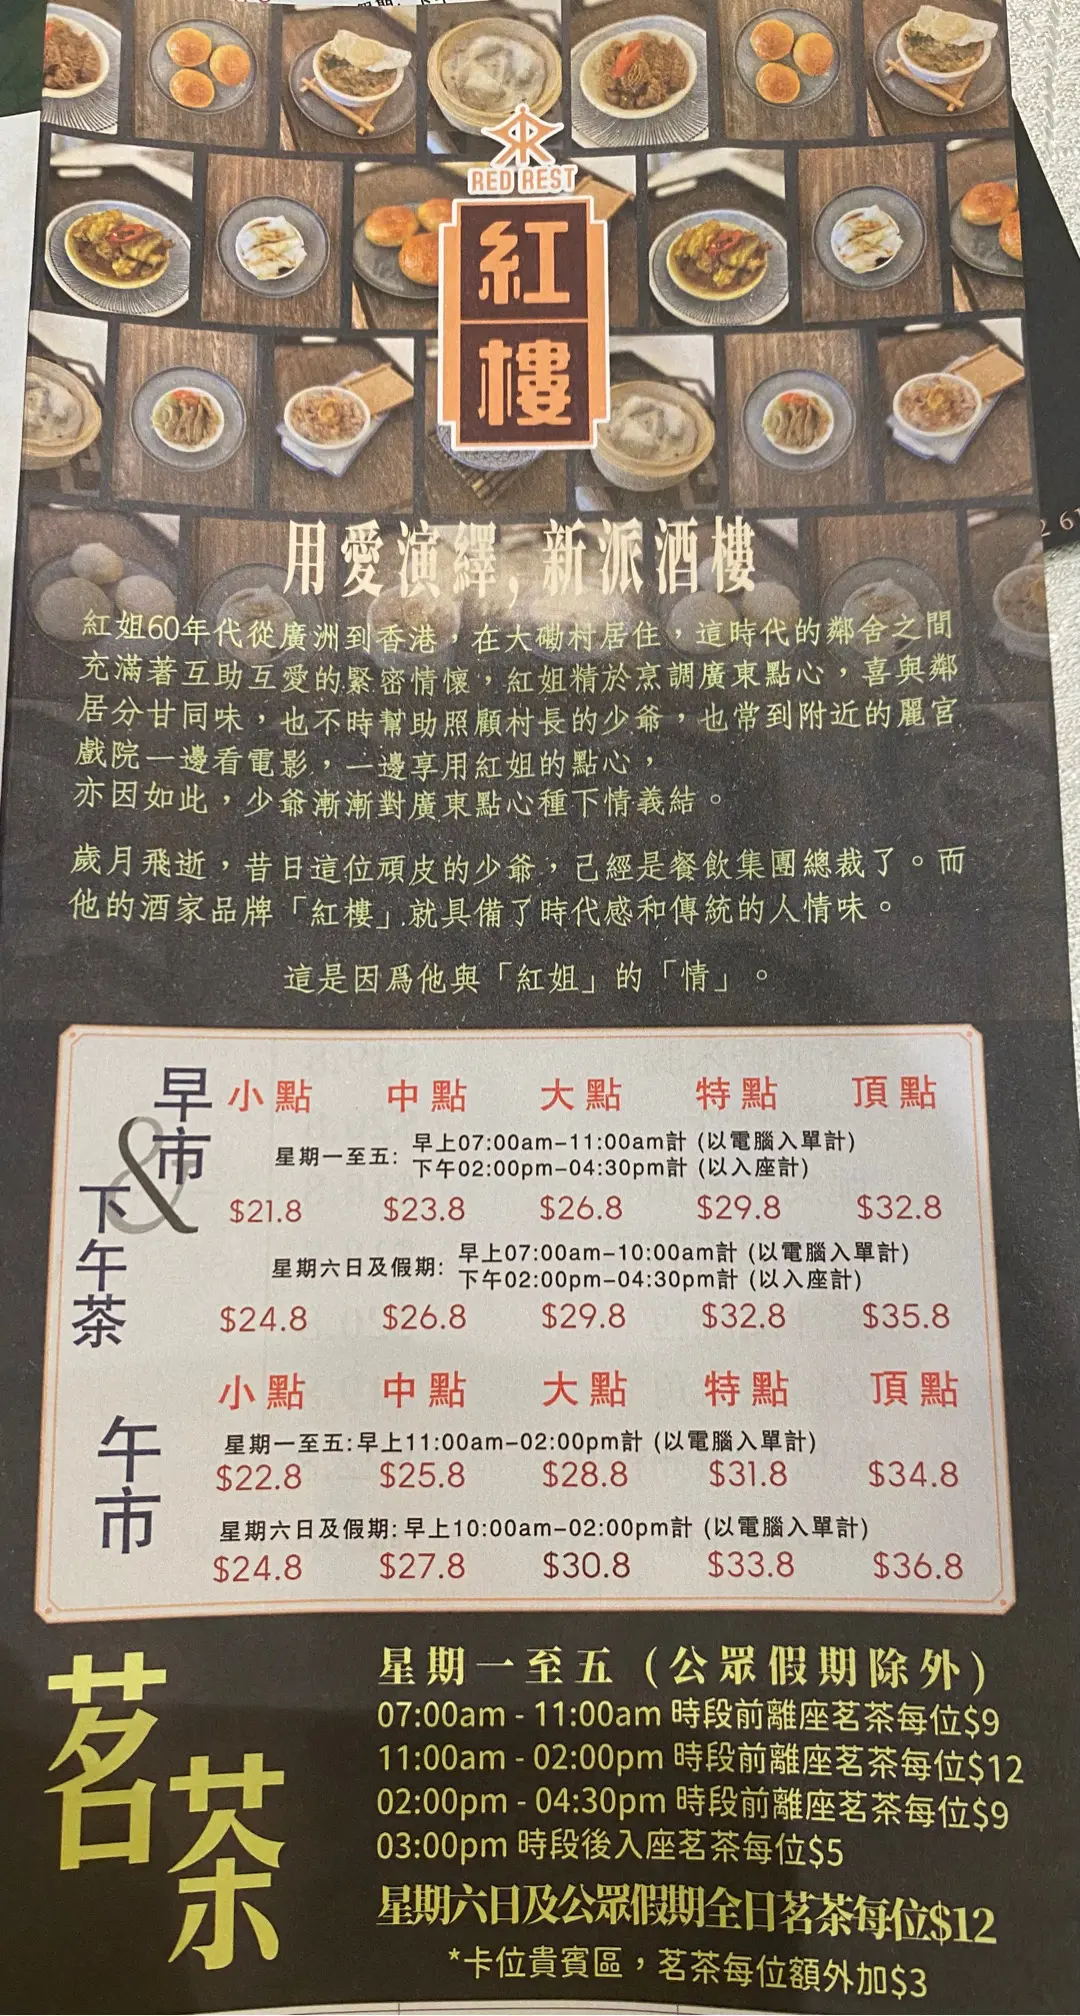 RED REST
紅
樓
用愛演繹, 新派酒樓
紅姐60年代從廣洲到香港，在大磡村居住，這時代的鄰舍之間
充滿著互助互愛的緊密情懷，紅姐精於烹調廣東點心，喜與鄰
居分甘同味，也不時幫助照顧村長的少爺，也常到附近的麗宮
戲院一邊看電影，一邊享用紅姐的點心，
亦因如此，少爺漸漸對廣東點心種下情義結。
歲月飛逝，昔日這位頑皮的少爺，已經是餐飲集團總裁了。而
他的酒家品牌「紅樓」就具備了時代感和傳統的人情味。
這是因爲他與「紅姐」的「情」。
早市
&
下午茶
小點 中點 大點 特點 頂點
星期一至五: 早上07:00am-11:00am計 (以電腦入單計)
下午02:00pm-04:30pm計 (以入座計)
$21.8 $23.8 $26.8 $29.8 $32.8
星期六日及假期: 早上07:00am-10:00am計 (以電腦入單計)
下午02:00pm-04:30pm計 (以入座計)
$24.8 $26.8 $29.8 $32.8 $35.8
午市
小點 中點 大點 特點 頂點
星期一至五:早上11:00am-02:00pm計 (以電腦入單計)
$22.8 $25.8 $28.8 $31.8 $34.8
星期六日及假期:早上10:00am-02:00pm計 (以電腦入單計)
$24.8 $27.8 $30.8 $33.8 $36.8
茗茶
星期一至五 (公眾假期除外)
07:00am - 11:00am 時段前離座茗茶每位$9
11:00am - 02:00pm 時段前離座茗茶每位$12
02:00pm - 04:30pm 時段前離座茗茶每位$9
03:00pm 時段後入座茗茶每位$5
星期六日及公眾假期全日茗茶每位$12
*卡位貴賓區，茗茶每位額外加$3